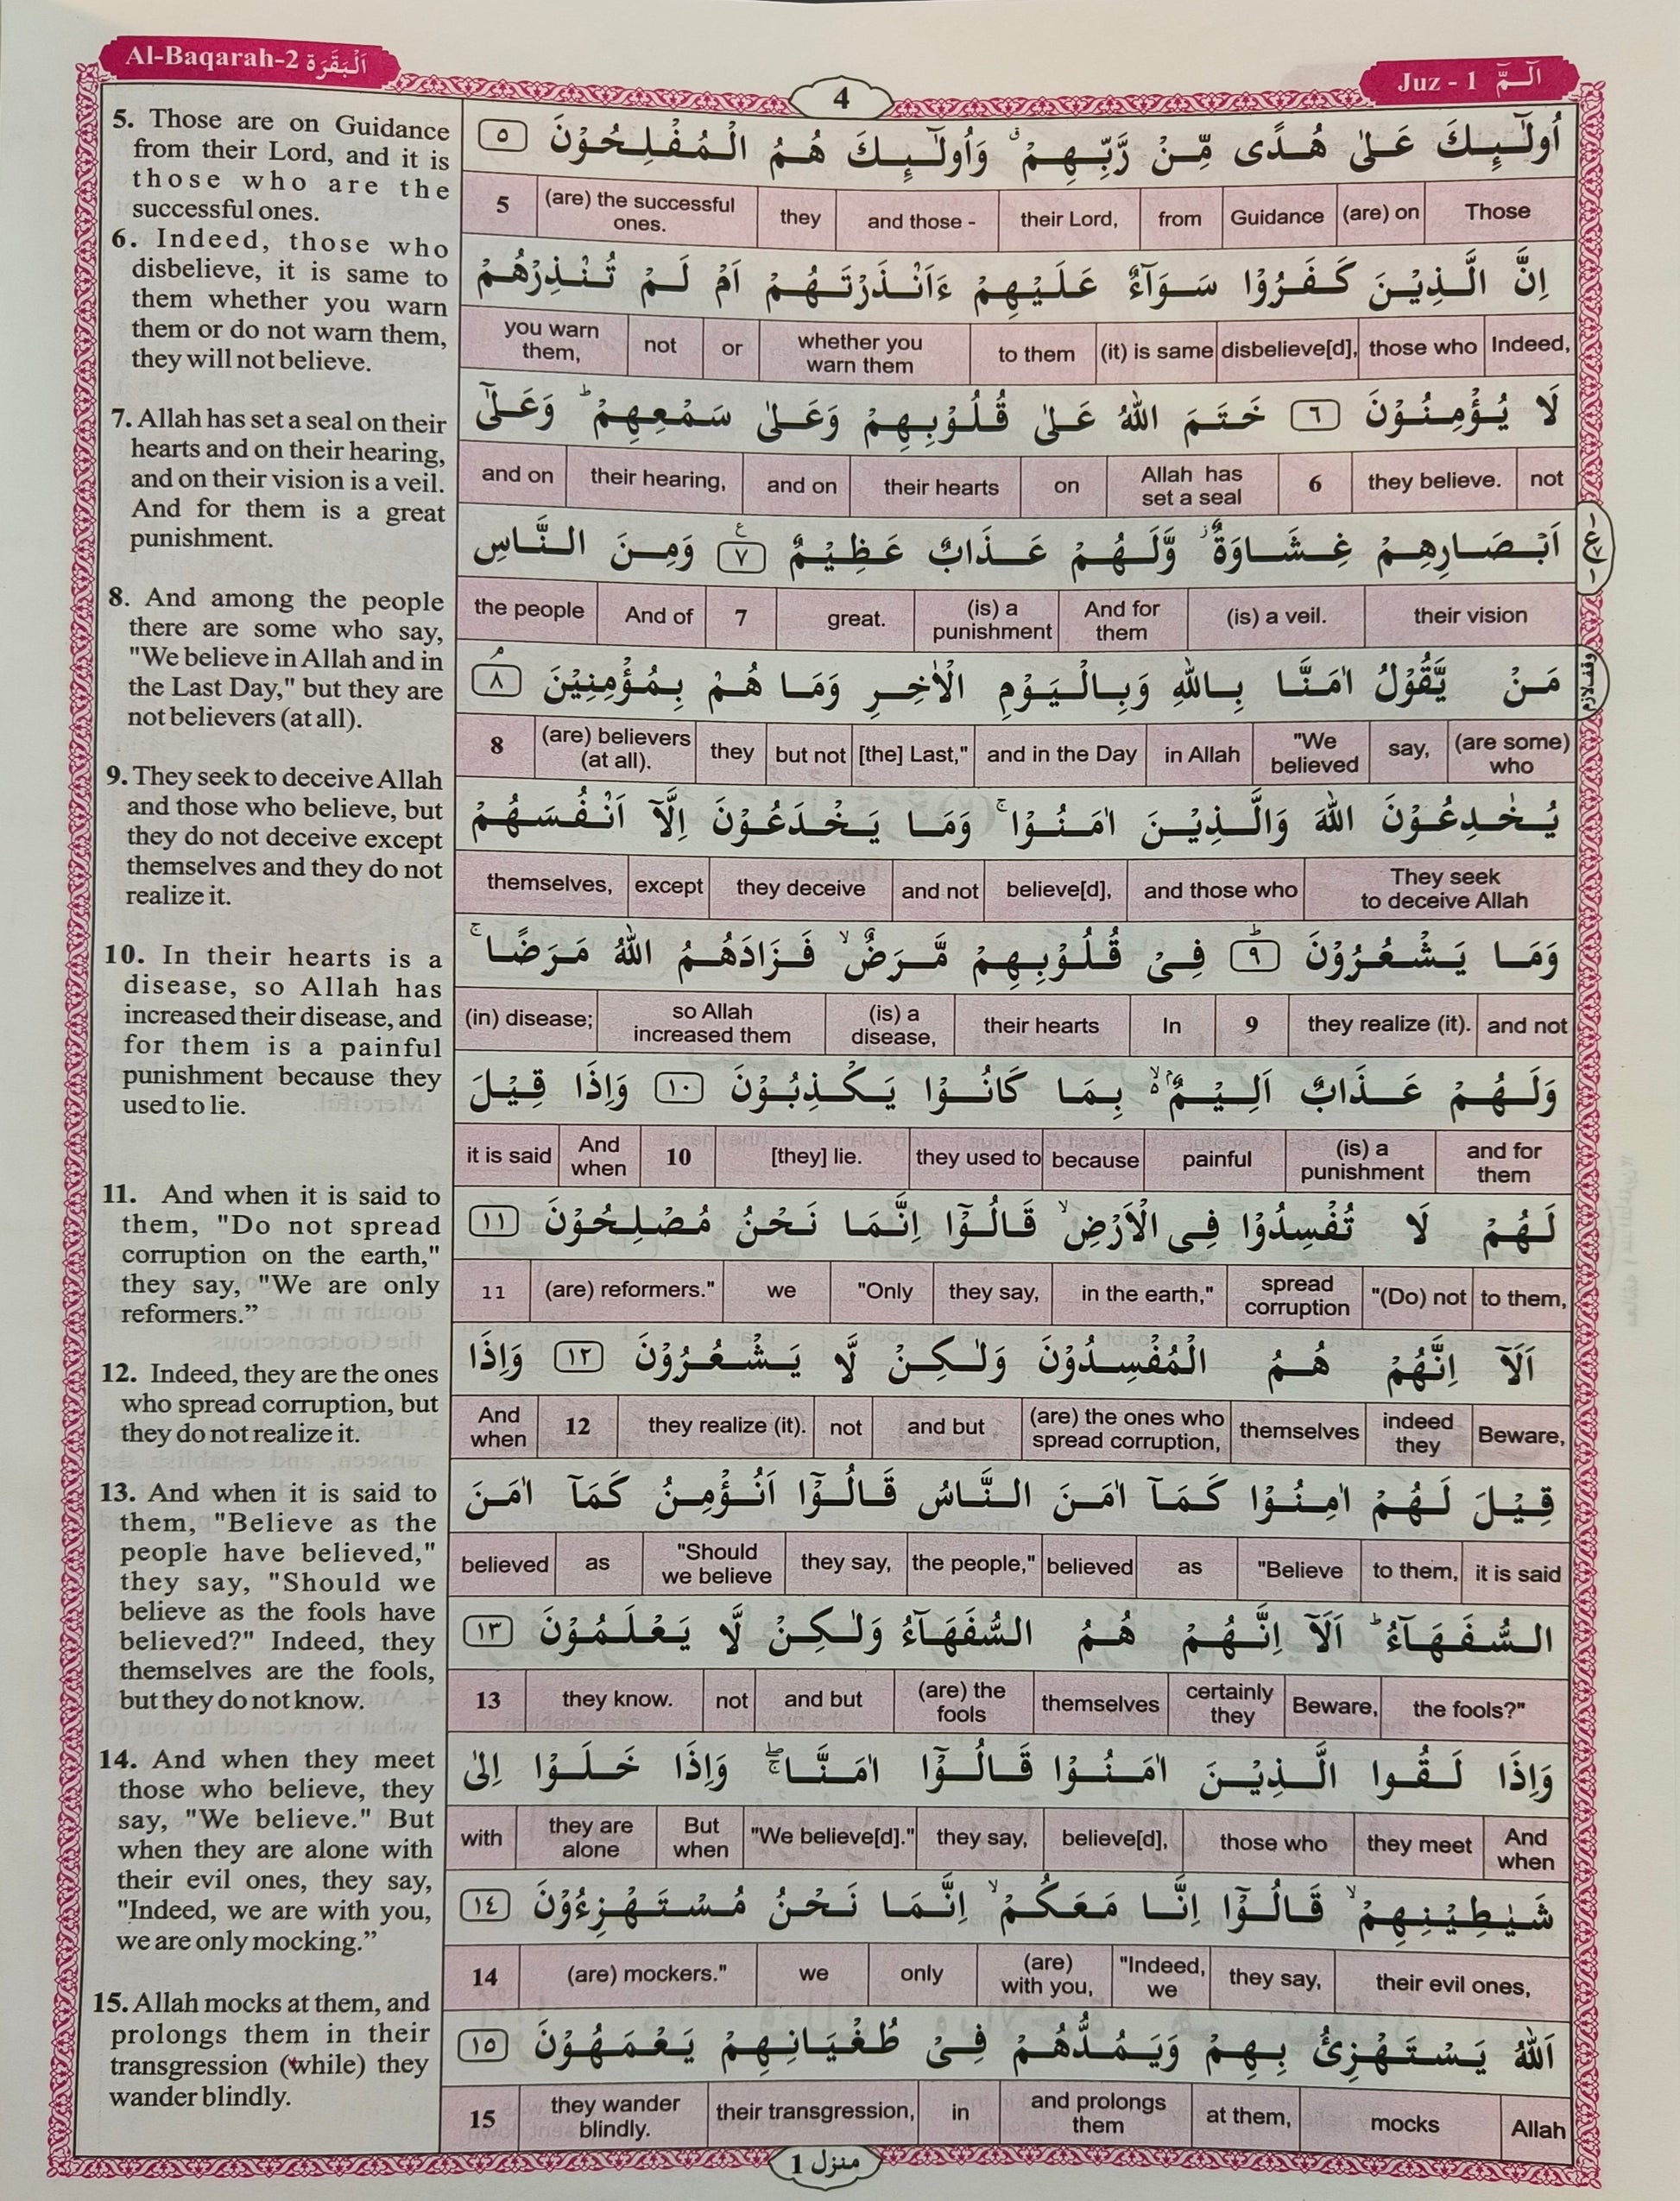 Al-Baqarah-2 اَلْبَقَرَة
4
Juz - 1 الٓـمّٓ
5. Those are on Guidance
from their Lord, and it is
those who are the
successful ones.
6. Indeed, those who
disbelieve, it is same to
them whether you warn
them or do not warn them,
they will not believe.
7. Allah has set a seal on their
hearts and on their hearing,
and on their vision is a veil.
And for them is a great
punishment.
8. And among the people
there are some who say,
"We believe in Allah and in
the Last Day," but they are
not believers (at all).
9. They seek to deceive Allah
and those who believe, but
they do not deceive except
themselves and they do not
realize it.
10. In their hearts is a
disease, so Allah has
increased their disease, and
for them is a painful
punishment because they
used to lie.
11. And when it is said to
them, "Do not spread
corruption on the earth,"
they say, "We are only
reformers.”
12. Indeed, they are the ones
who spread corruption, but
they do not realize it.
13. And when it is said to
them, "Believe as the
people have believed,"
they say, "Should we
believe as the fools have
believed?" Indeed, they
themselves are the fools,
but they do not know.
14. And when they meet
those who believe, they
say, "We believe." But
when they are alone with
their evil ones, they say,
"Indeed, we are with you,
we are only mocking.”
15. Allah mocks at them, and
prolongs them in their
transgression (while) they
wander blindly.
اُولٰٓئِكَ عَلٰى هُدًى مِّنْ رَّبِّهِمْ ۙ وَاُولٰٓئِكَ هُمُ الْمُفْلِحُوْنَ ٥
Those (are) on Guidance from their Lord, and those - they (are) the successful ones. 5
اِنَّ الَّذِيْنَ كَفَرُوْا سَوَآءٌ عَلَيْهِمْ ءَاَنْذَرْتَهُمْ اَمْ لَمْ تُنْذِرْهُمْ
Indeed, those who disbelieve[d], (it) is same to them whether you warn them or not you warn them,
لَا يُؤْمِنُوْنَ ٦ خَتَمَ اللّٰهُ عَلٰى قُلُوْبِهِمْ وَعَلٰى سَمْعِهِمْ ؕ وَعَلٰٓى
not they believe. 6 Allah has set a seal on their hearts and on their hearing, and on
اَبْصَارِهِمْ غِشَاوَةٌ ۫ وَّلَهُمْ عَذَابٌ عَظِيْمٌ ٧ وَمِنَ النَّاسِ
their vision (is) a veil. And for them (is) a punishment great. 7 And of the people
مَنْ يَّقُوْلُ اٰمَنَّا بِاللّٰهِ وَبِالْيَوْمِ الْاٰخِرِ وَمَا هُمْ بِمُؤْمِنِيْنَ ٨
(are some) who say, "We believed in Allah and in the Day [the] Last," but not they (are) believers (at all). 8
يُخٰدِعُوْنَ اللّٰهَ وَالَّذِيْنَ اٰمَنُوْا ۚ وَمَا يَخْدَعُوْنَ اِلَّآ اَنْفُسَهُمْ
They seek to deceive Allah and those who believe[d], and not they deceive except themselves,
وَمَا يَشْعُرُوْنَ ٩ فِىْ قُلُوْبِهِمْ مَّرَضٌ ۙ فَزَادَهُمُ اللّٰهُ مَرَضًا ۚ
and not they realize (it). 9 In their hearts (is) a disease, so Allah increased them (in) disease;
وَلَهُمْ عَذَابٌ اَلِيْمٌ ۙ بِمَا كَانُوْا يَكْذِبُوْنَ ١٠ وَاِذَا قِيْلَ
and for them (is) a punishment painful because they used to [they] lie. 10 And when it is said
لَهُمْ لَا تُفْسِدُوْا فِى الْاَرْضِ ۙ قَالُوْٓا اِنَّمَا نَحْنُ مُصْلِحُوْنَ ١١
to them, "(Do) not spread corruption in the earth," they say, "Only we (are) reformers." 11
اَلَآ اِنَّهُمْ هُمُ الْمُفْسِدُوْنَ وَلٰكِنْ لَّا يَشْعُرُوْنَ ١٢ وَاِذَا
Beware, indeed they themselves (are) the ones who spread corruption, and but not they realize (it). 12 And when
قِيْلَ لَهُمْ اٰمِنُوْا كَمَآ اٰمَنَ النَّاسُ قَالُوْٓا اَنُؤْمِنُ كَمَآ اٰمَنَ
it is said to them, "Believe as believed the people," they say, "Should we believe as believed
السُّفَهَآءُ ؕ اَلَآ اِنَّهُمْ هُمُ السُّفَهَآءُ وَلٰكِنْ لَّا يَعْلَمُوْنَ ١٣
the fools?" Beware, certainly they themselves (are) the fools and but not they know. 13
وَاِذَا لَقُوا الَّذِيْنَ اٰمَنُوْا قَالُوْٓا اٰمَنَّا ۖۚ وَاِذَا خَلَوْا اِلٰى
And when they meet those who believe[d], they say, "We believe[d]." But when they are alone with
شَيٰطِيْنِهِمْ ۙ قَالُوْٓا اِنَّا مَعَكُمْ ۙ اِنَّمَا نَحْنُ مُسْتَهْزِءُوْنَ ١٤
their evil ones, they say, "Indeed, we (are) with you, only we (are) mockers." 14
اَللّٰهُ يَسْتَهْزِئُ بِهِمْ وَيَمُدُّهُمْ فِىْ طُغْيَانِهِمْ يَعْمَهُوْنَ ١٥
Allah mocks at them, and prolongs them in their transgression, they wander blindly. 15
ع
٧
وقف لازم
منزل 1